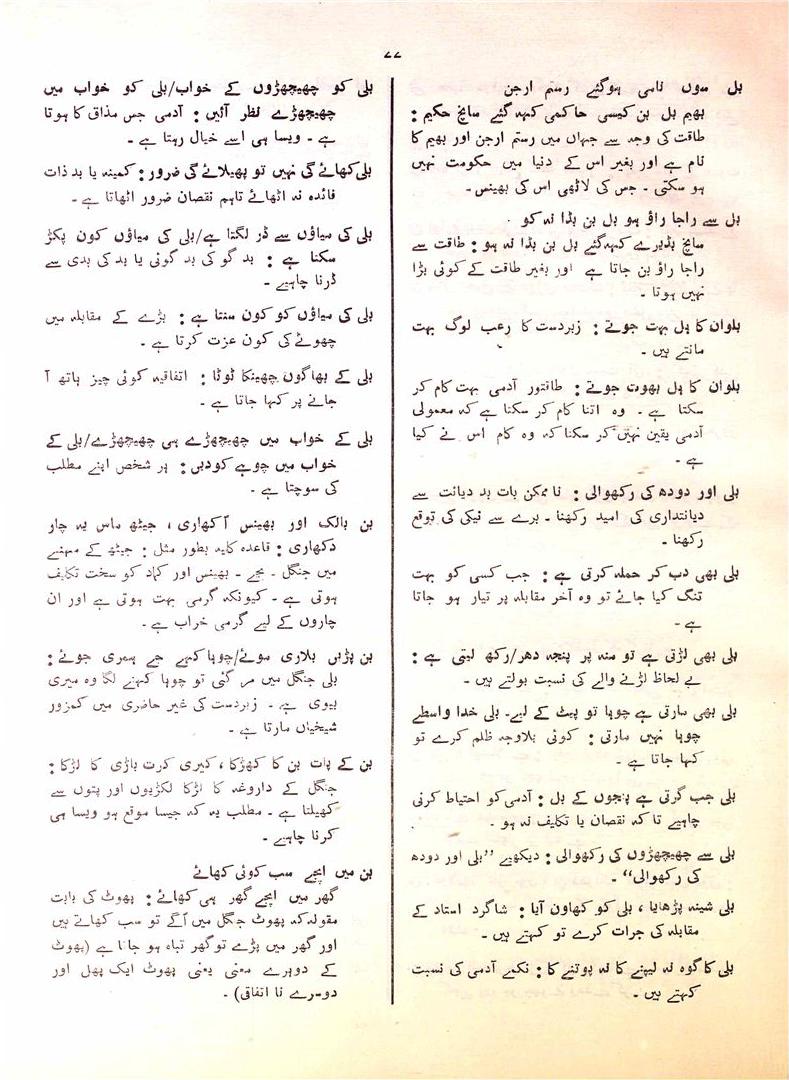 ۷۷
بل سوں نامی ہوگئے رستم ارجن
بھیم بل بن کیسی حاکمی کہہ گئے سانچ حکیم :
طاقت کی وجہ سے جہاں میں رستم ارجن اور بھیم کا
نام ہے اور بغیر اس کے دنیا میں حکومت نہیں
ہو سکتی ۔ جس کی لاٹھی اس کی بھینس ۔
بل سے راجا راؤ ہو بل بن بڈا نہ کو
سانچ بڈیرے کہہ گئے بل بن بڈا نہ ہو : طاقت سے
راجا راؤ بن جاتا ہے اور بغیر طاقت کے کوئی بڑا
نہیں ہوتا ۔
بلوان کا بل بہت جوتے : زبردست کا رعب لوگ بہت
مانتے ہیں ۔
بلوان کا بل بھوت جوتے : طاقتور آدمی بہت کام کر
سکتا ہے ۔ وہ اتنا کام کر سکتا ہے کہ معمولی
آدمی یقین نہیں کر سکتا کہ وہ کام اس نے کیا
ہے ۔
بلی اور دودھ کی رکھوالی : نا ممکن بات بد دیانت سے
دیانتداری کی امید رکھنا ۔ برے سے نیکی کی توقع
رکھنا ۔
بلی بھی دب کر حملہ کرتی ہے : جب کسی کو بہت
تنگ کیا جائے تو وہ آخر مقابلہ پر تیار ہو جاتا
ہے ۔
بلی بھی لڑتی ہے تو منہ پر پنجہ دھر/رکھ لیتی ہے :
بے لحاظ لڑنے والے کی نسبت بولتے ہیں ۔
بلی بھی مارتی ہے چوہا تو پیٹ کے لیے۔ بلی خدا واسطے
چوہا نہیں مارتی : کوئی بلاوجہ ظلم کرے تو
کہا جاتا ہے ۔
بلی جب گرتی ہے پنجوں کے بل : آدمی کو احتیاط کرنی
چاہیے تا کہ نقصان یا تکلیف نہ ہو ۔
بلی سے چھیچھڑوں کی رکھوالی : دیکھیے ”بلی اور دودھ
کی رکھوالی“ ۔
بلی شینہ پڑھایا ، بلی کو کھاون آیا : شاگرد استاد کے
مقابلہ کی جرات کرے تو کہتے ہیں ۔
بلی کا گوہ نہ لیپنے کا نہ پوتنے کا : نکمے آدمی کی نسبت
کہتے ہیں ۔
بلی کو چھیچھڑوں کے خواب/بلی کو خواب میں
چھیچھڑے نظر آئیں : آدمی جس مذاق کا ہوتا
ہے ۔ ویسا ہی اسے خیال رہتا ہے ۔
بلی کھائے گی نہیں تو پھیلائے گی ضرور : کمینہ یا بد ذات
فائدہ نہ اٹھائے تاہم نقصان ضرور اٹھاتا ہے ۔
بلی کی میاؤں سے ڈر لگتا ہے/بلی کی میاؤں کون پکڑ
سکتا ہے : بد گو کی بد گوئی یا بد کی بدی سے
ڈرنا چاہیے ۔
بلی کی میاؤں کو کون سنتا ہے : بڑے کے مقابلہ میں
چھوٹے کی کون عزت کرتا ہے ۔
بلی کے بھاگوں چھینکا ٹوٹا : اتفاقیہ کوئی چیز ہاتھ آ
جانے پر کہا جاتا ہے ۔
بلی کے خواب میں چھیچھڑے ہی چھیچھڑے/بلی کے
خواب میں چوہے کودیں : ہر شخص اپنے مطلب
کی سوچتا ہے ۔
بن بالک اور بھینس آکھاری ، جیٹھ ماس یہ چار
دکھاری : قاعدہ کلیہ بطور مثل : جیٹھ کے مہینے
میں جنگل ۔ بچے ۔ بھینس اور کماد کو سخت تکلیف
ہوتی ہے ۔ کیونکہ گرمی بہت ہوتی ہے اور ان
چاروں کے لیے گرمی خراب ہے ۔
بن پڑیں بلاری موئے/چوہا کہے جے ہمری جوئے :
بلی جنگل میں مر گئی تو چوہا کہنے لگا وہ میری
بیوی ہے ۔ زبردست کی غیر حاضری میں کمزور
شیخیاں مارتا ہے ۔
بن کے پات بن کا کھڑکا ، کیری کرت باڑی کا لڑکا :
جنگل کے داروغہ کا لڑکا لکڑیوں اور پتوں سے
کھیلتا ہے ۔ مطلب یہ کہ جیسا موقع ہو ویسا ہی
کرنا چاہیے ۔
بن میں اپجے سب کوئی کھائے
گھر میں اپجے گھر ہی کھائے : پھوٹ کی بابت
مقولہ کہ پھوٹ جنگل میں اگے تو سب کھاتے ہیں
اور گھر میں پڑے تو گھر تباہ ہو جاتا ہے (پھوٹ
کے دوہرے معنی یعنی پھوٹ ایک پھل اور
دوسرے نا اتفاقی) ۔